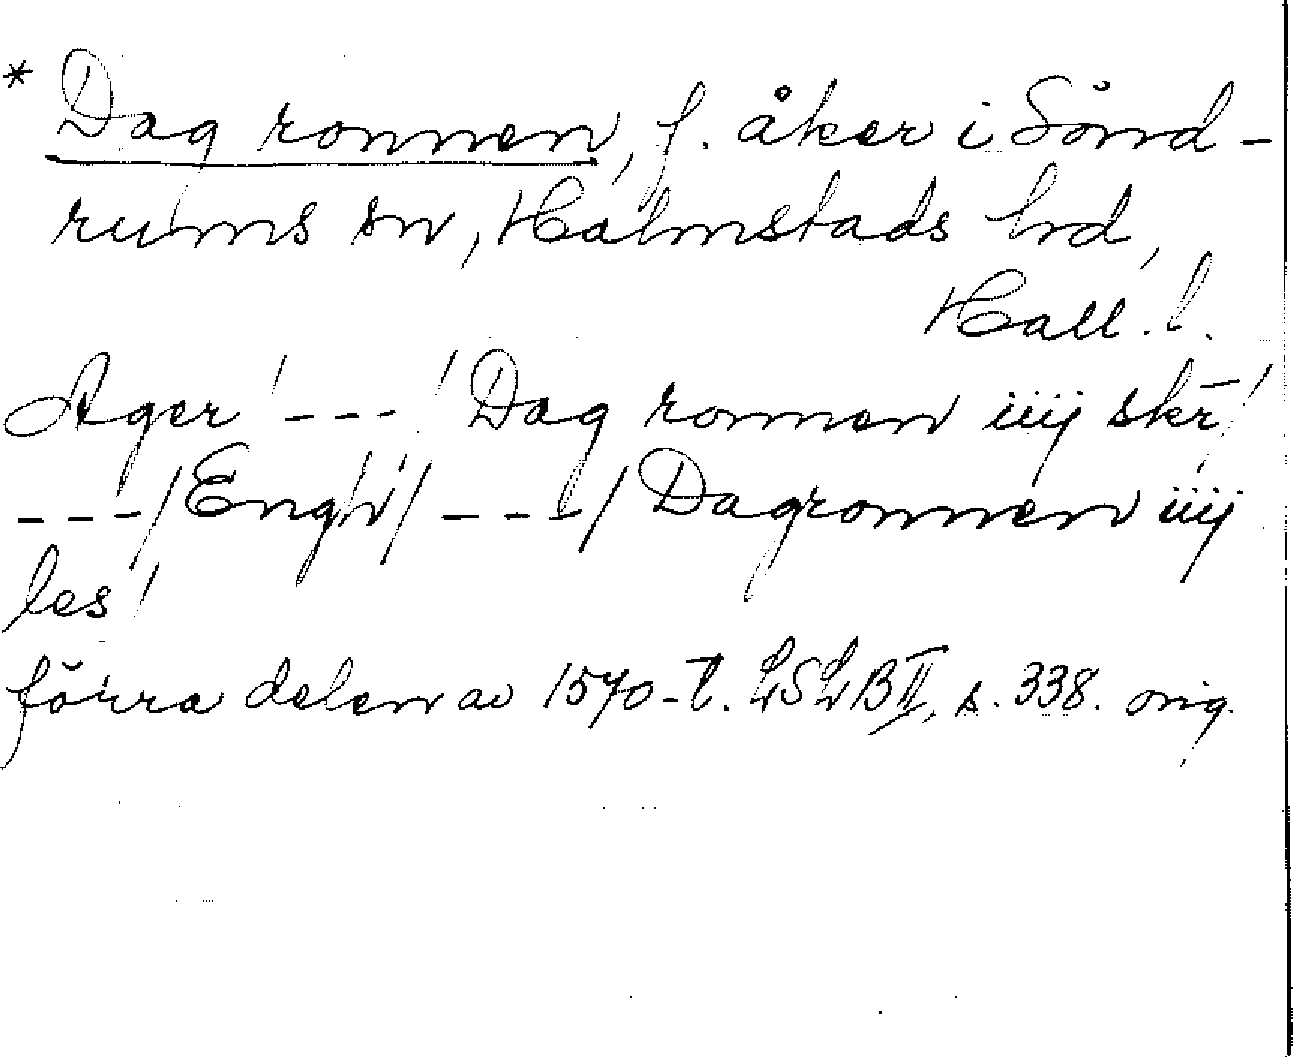 * Dag ronnen, f. åker i Sönd-
rums sn, Halmstads hd,
Hall. l.
Ager / --- / Dag ronnen iiij skr̄ /
--- / Engh / --- / Dagronnen iiij
les /
förra delen av 1570-t. LSLB II, s. 338. orig.